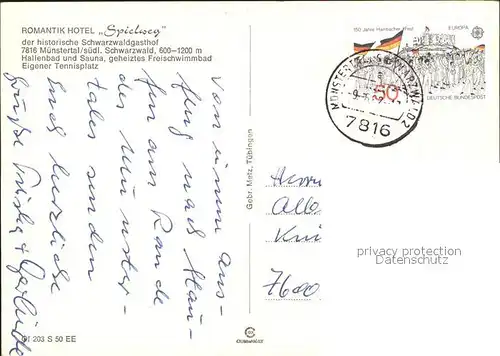 ROMANTIK HOTEL „Spielweg"
der historische Schwarzwaldgasthof
7816 Münstertal/südl. Schwarzwald, 600-1200 m
Hallenbad und Sauna, geheiztes Freischwimmbad
Eigener Tennisplatz
Von einem Aus-
flug nach Stau-
fen am Rande
des Münster-
tales senden
Euch herzliche
Grüße
51 203 S 50 EE
Gebr. Metz, Tübingen
150 Jahre Hambacher Fest
EUROPA
50
DEUTSCHE BUNDESPOST
MÜNSTERTAL, SCHWARZW
7816
Herrn
7600
privacy protection
Datenschutz